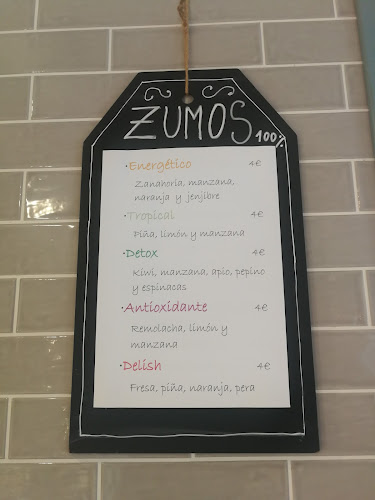 ZUMOS 100%
·Energético 4€
Zanahoria, manzana,
naranja y jenjibre
·Tropical 4€
Piña, limón y manzana
·Detox 4€
Kiwi, manzana, apio, pepino
y espinacas
·Antioxidante 4€
Remolacha, limón y
manzana
·Delish 4€
Fresa, piña, naranja, pera